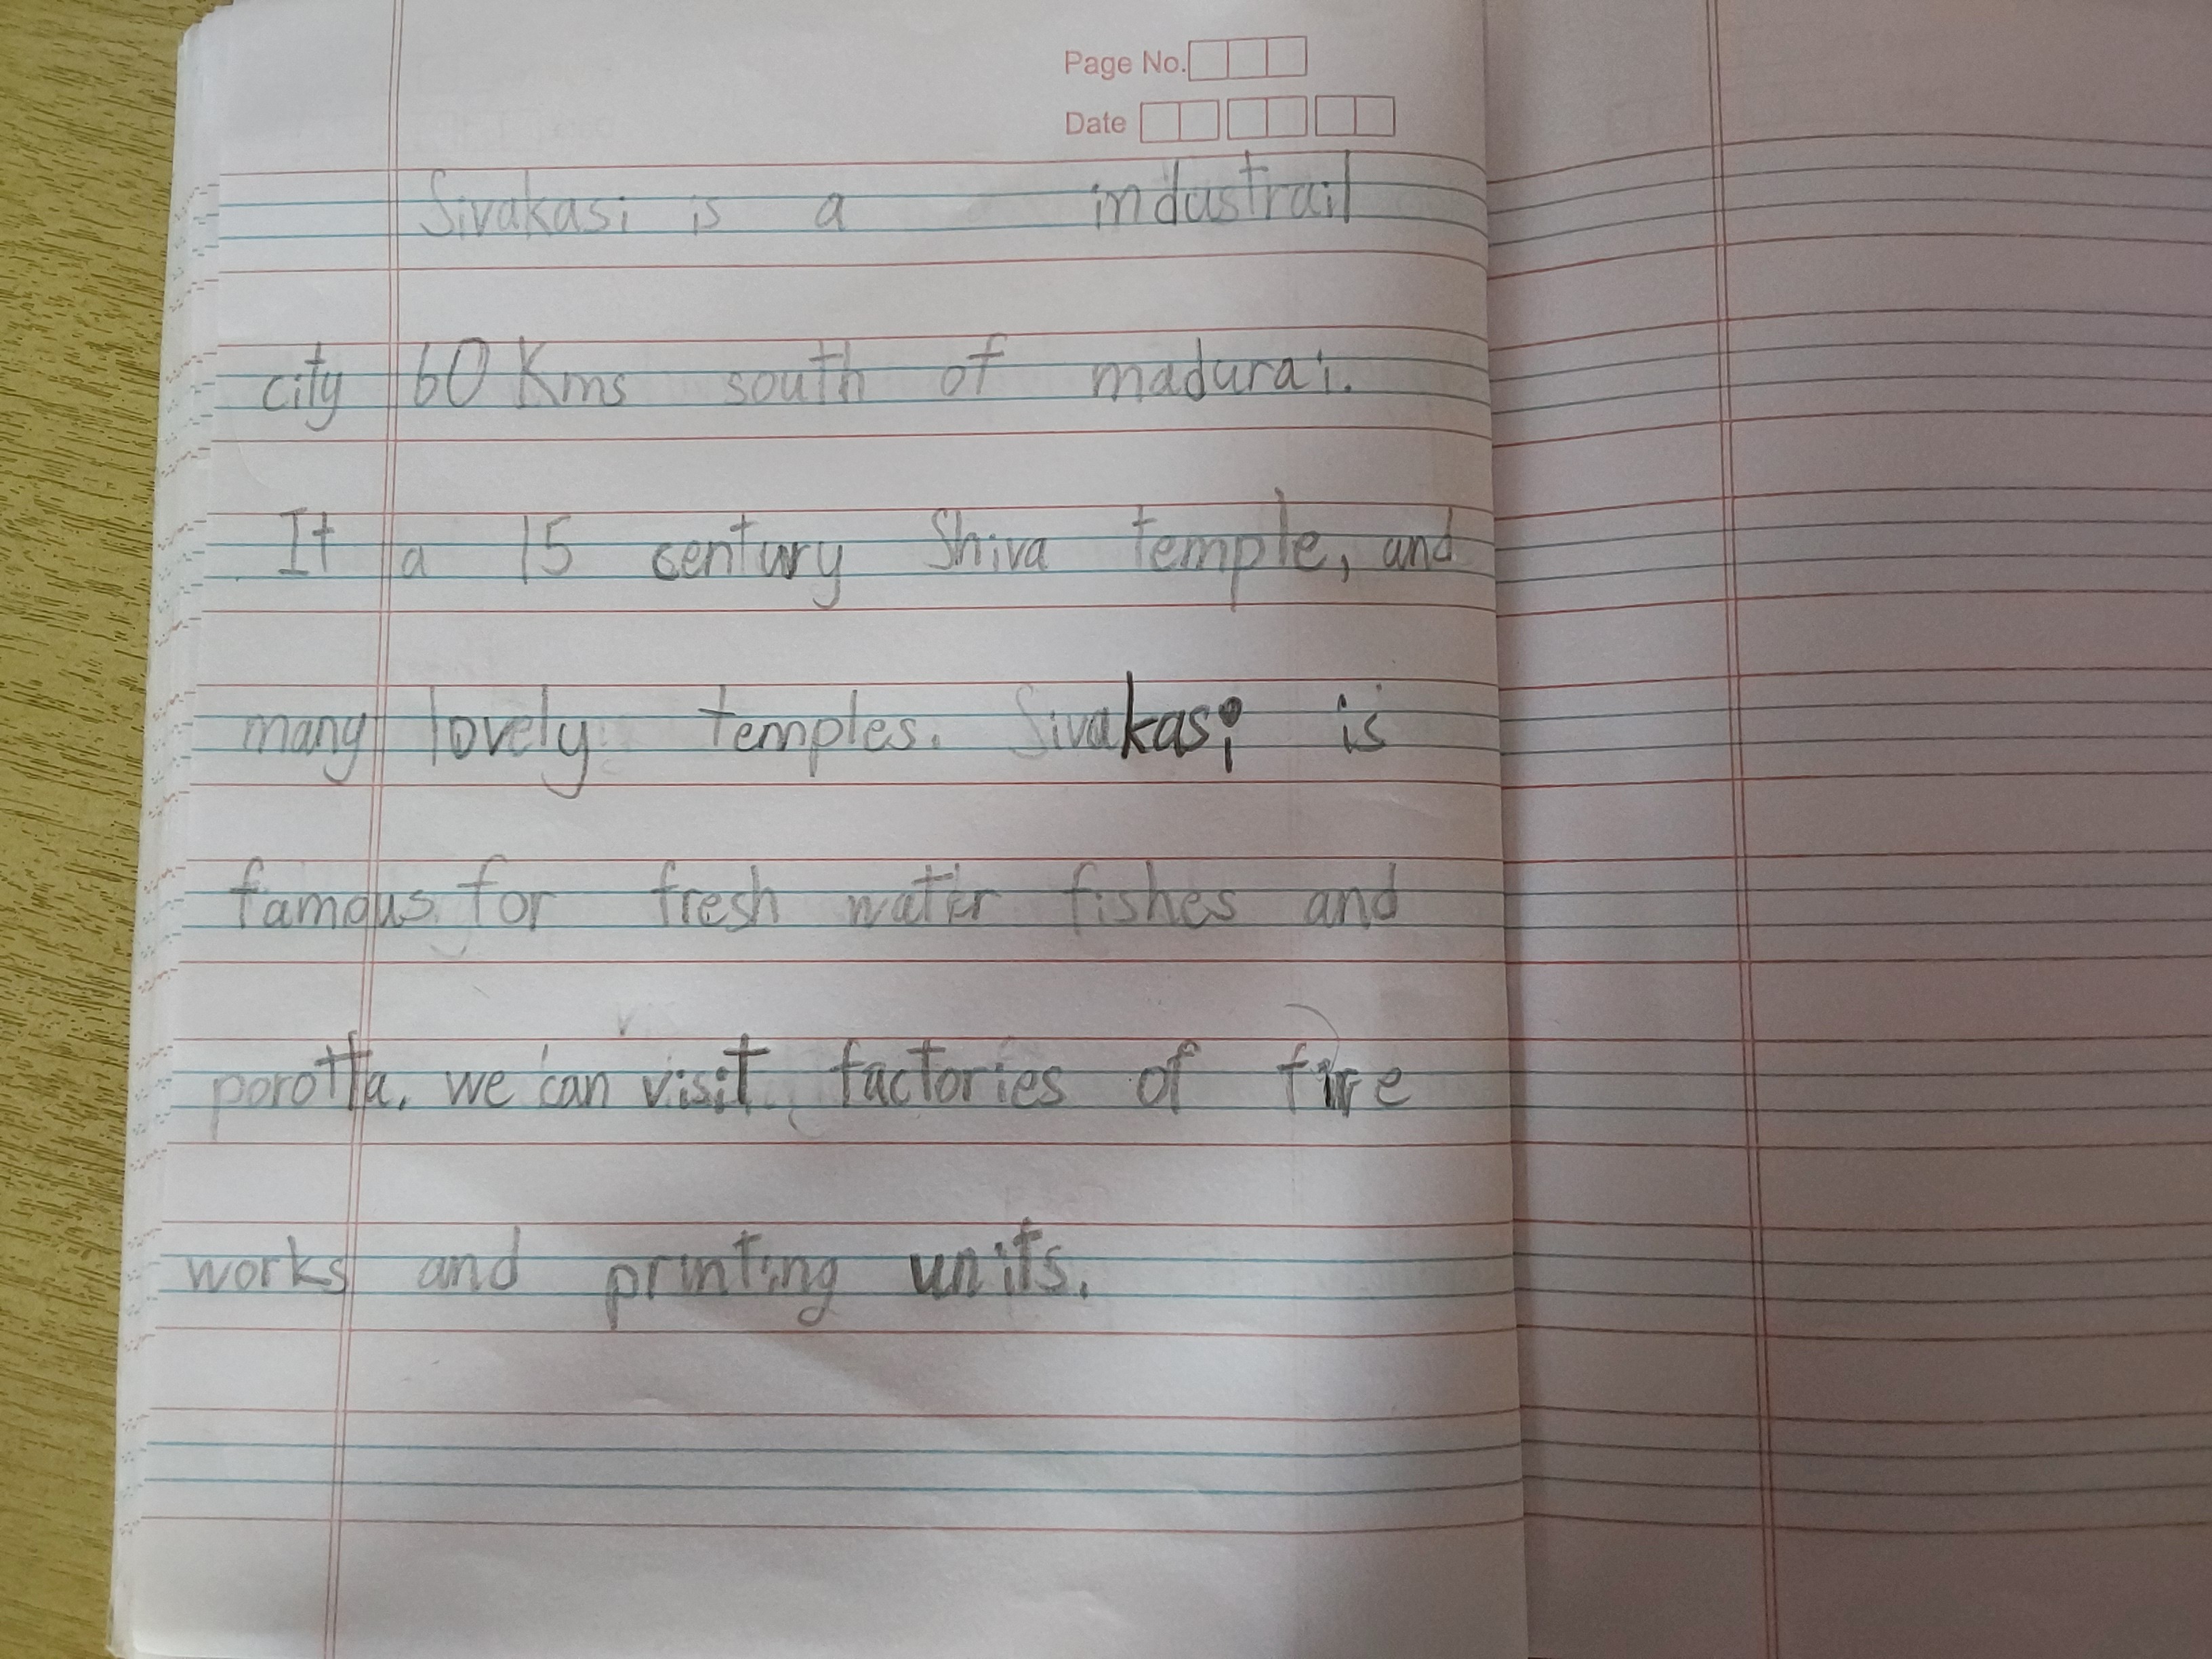 Page No.
Date
Sivakasi is a industrail
city 60 Kms south of madurai.
It a 15 century Shiva temple, and
many lovely temples. Sivakasi is
famous for fresh water fishes and
porotta. we can visit factories of fire
works and printing units.